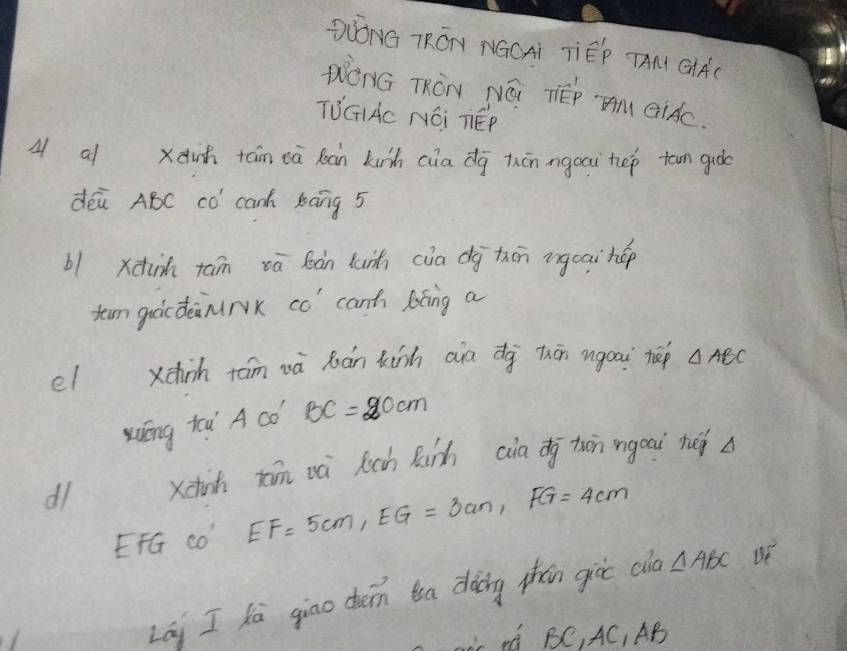 ĐƯỜNG TRÒN NGOẠI TIẾP TAM GIÁC
ĐƯỜNG TRÒN NỘI TIẾP TAM GIÁC.
TỨ GIÁC NỘI TIẾP
1/ a/ Xđịnh tâm và bán kính của đg tròn ngoại tiếp tam giác
đều ABC có cạnh bằng 5
b/ Xđịnh tâm và bán kính của đg tròn ngoại tiếp
tam giác đều MNK có cạnh bằng a
c/ Xđịnh tâm và bán kính của đg tròn ngoại tiếp Δ ABC
vuông tại A có BC = 20cm
d/ Xđịnh tâm và bán kính của đg tròn ngoại tiếp Δ
EFG có EF = 5cm, EG = 3cm, FG = 4cm
Lấy I là giao điểm ba đường phân giác của Δ ABC vẽ
BC, AC, AB